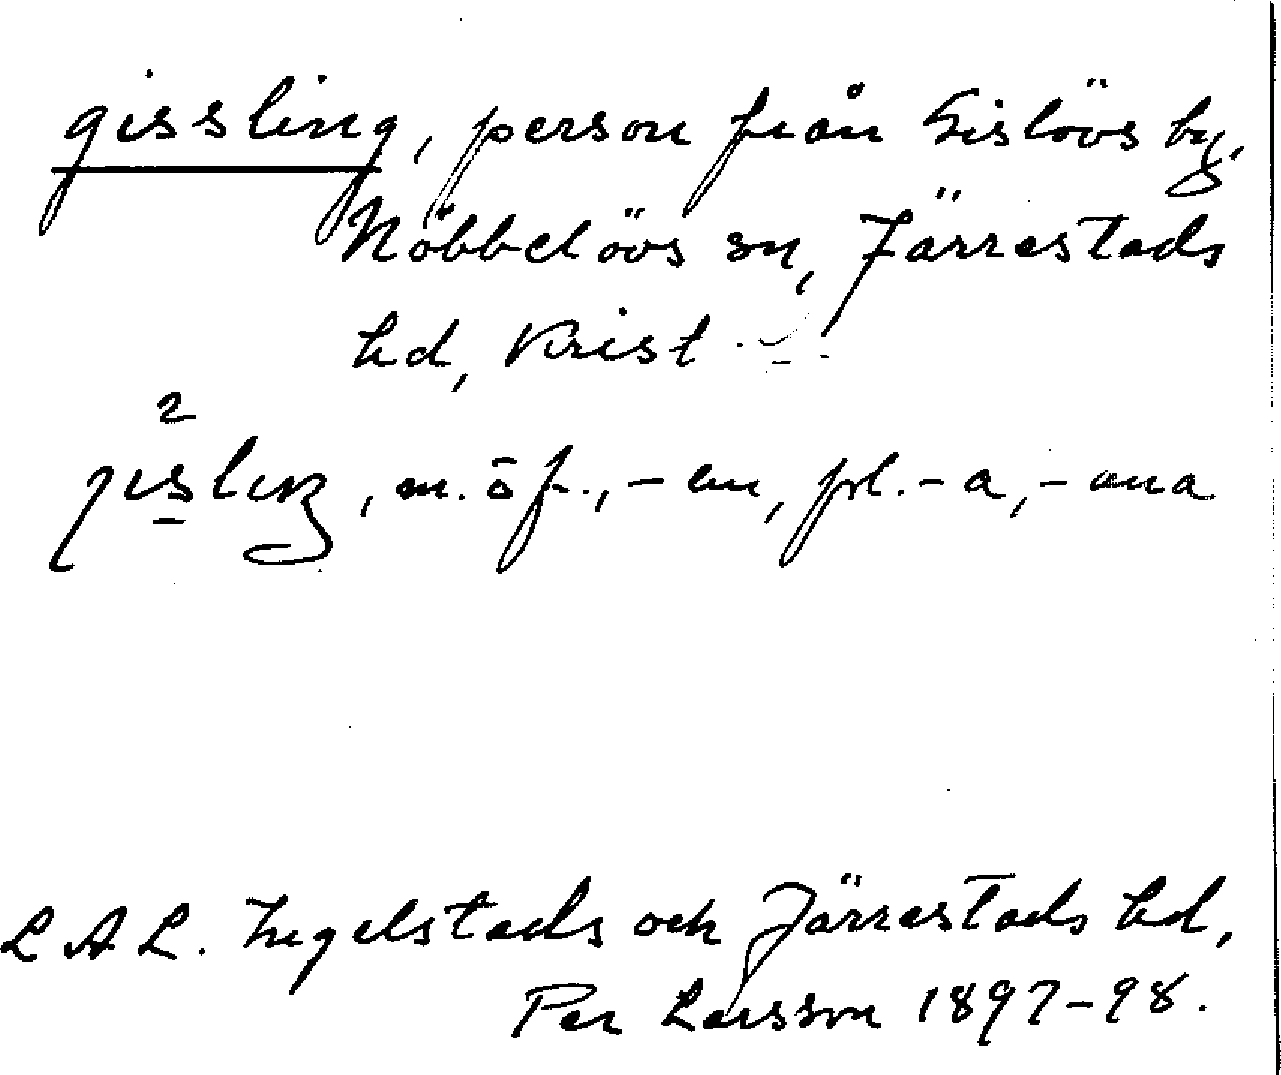 gissling, person från Gislövs by,
Nöbbelövs sn, Järrestads
hd, Krist.
2
jisliŋ, m. o f., -en, pl. -a, -ana
L A L. Ingelstads och Järrestads hd,
Per Larsson 1897-98.